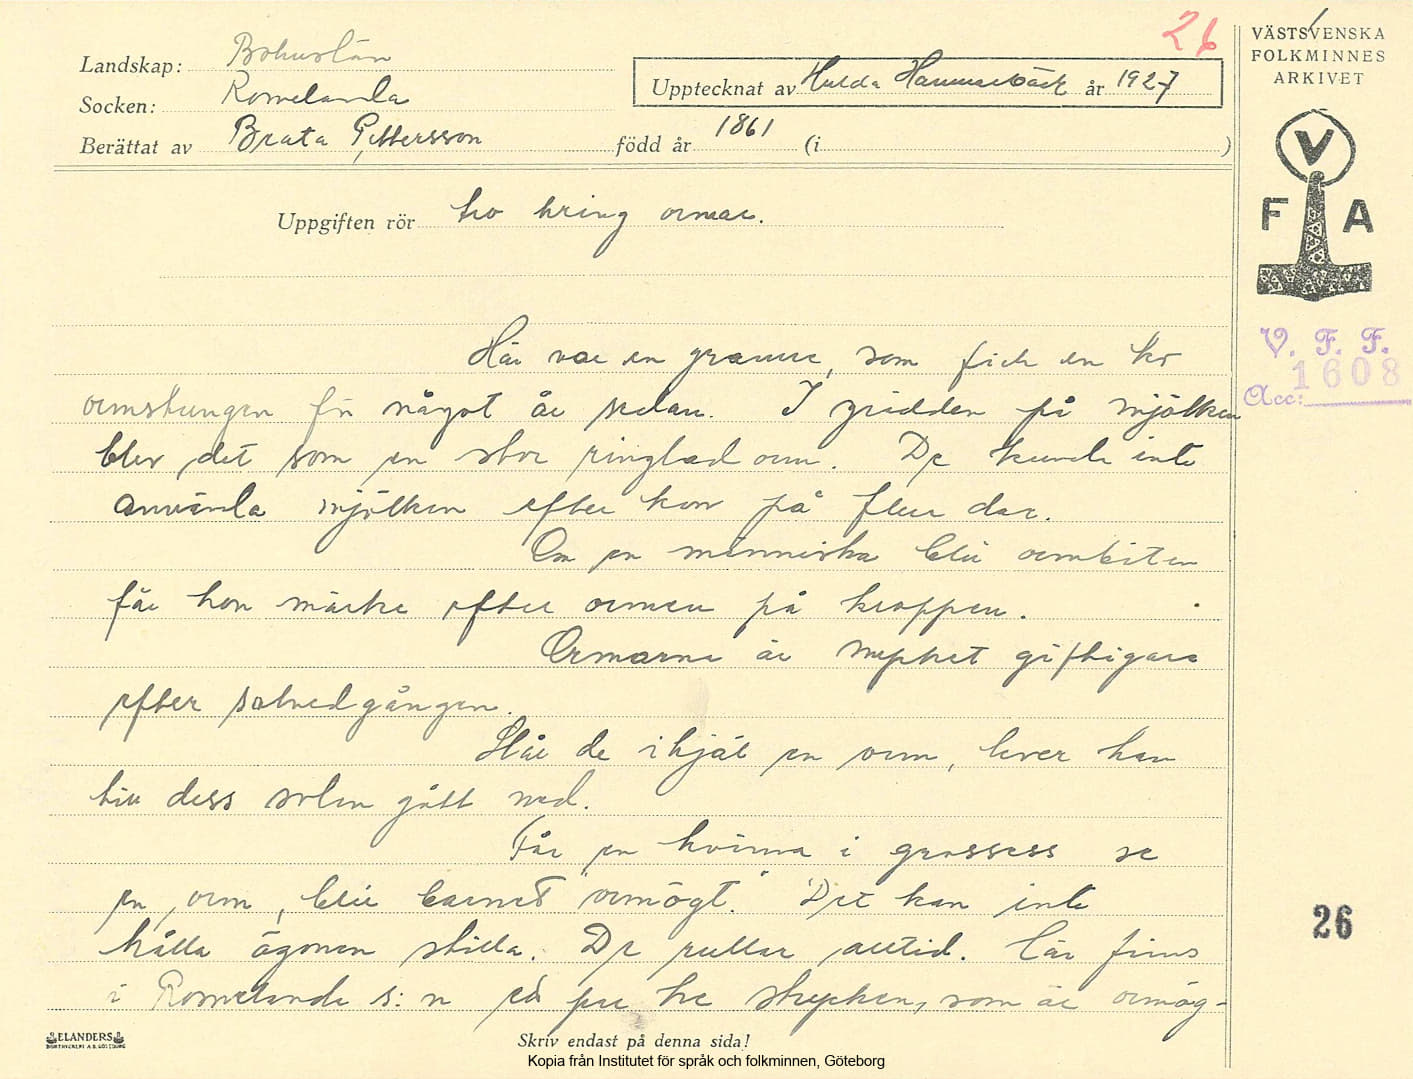 26
VÄSTSVENSKA
FOLKMINNES
ARKIVET
Landskap: Bohuslän
Socken: Romelanda
Upptecknat av Hulda Hammarbäck år 1927
Berättat av Brata Pettersson född år 1861 (i )
Uppgiften rör tro kring ormar.
V
F A
V. F. F.
Acc: 1608
Här var en granne, som fick en ko
ormstungen för något år sedan. I grädden på mjölken
blev det som en stor ringlad orm. De kunde inte
använda mjölken efter kon på flera dar.
Om en människa blir ormbiten
får hon märke efter ormen på kroppen.
Ormarne är mycket giftigare
efter solnedgången.
Slår de ihjäl en orm, lever han
till dess solen gått ned.
Får en kvinna i grossess se
en orm, blir barnet "ormögt." Det kan inte
hålla ögonen stilla. De rullar alltid. Här finns
i Romelanda s:n ett par tre stycken, som är ormög-
26
ELANDERS
BOKTRYCKERI A.B. GÖTEBORG
Skriv endast på denna sida!
Kopia från Institutet för språk och folkminnen, Göteborg